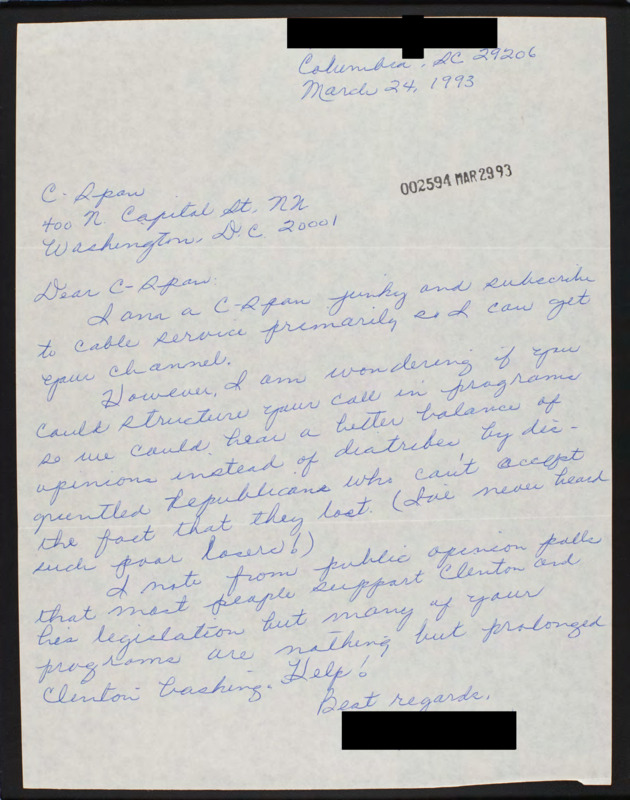 Columbia, SC 29206
March 24, 1993
002594 MAR 29 93
C-Span
400 N. Capital St, NW
Washington, D.C. 20001
Dear C-Span:
I am a C-Span junky and subscribe
to cable service primarily so I can get
your channel.
However, I am wondering if you
could structure your call in programs
so we could hear a better balance of
opinions instead of diatribes by dis-
gruntled Republicans who can't accept
the fact that they lost. (I've never heard
such poor losers!)
I note from public opinion polls
that most people support Clinton and
his legislation but many of your
programs are nothing but prolonged
Clinton bashing. Help!
Best regards,